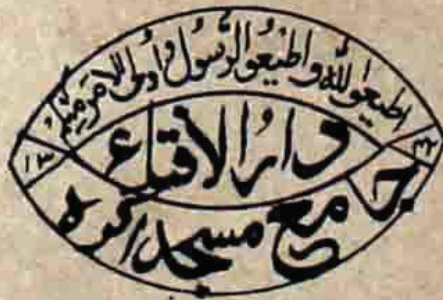 اطیعو اللہ و اطیعو الرسول و اولی الامر منکم
۱۳ ۳۲
دار الافتاء
جامع مسجد اگرہ